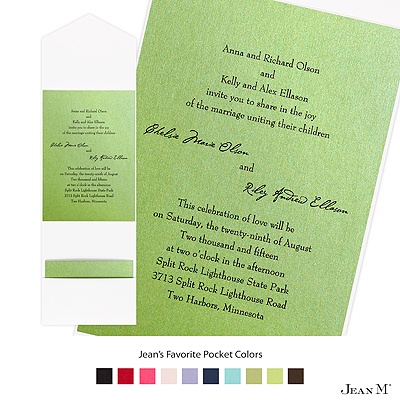 Anna and Richard Olson
and
Kelly and Alex Ellason
invite you to share in the joy
of the marriage uniting their children
Chelsie Marie Olson
and
Riley Andrew Ellason
This celebration of love will be
on Saturday, the twenty-ninth of August
Two thousand and fifteen
at two o'clock in the afternoon
Split Rock Lighthouse State Park
3713 Split Rock Lighthouse Road
Two Harbors, Minnesota
Anna and Richard Olson
and
Kelly and Alex Ellason
invite you to share in the joy
of the marriage uniting their children
Chelsie Marie Olson
and
Riley Andrew Ellason
This celebration of love will be
on Saturday, the twenty-ninth of August
Two thousand and fifteen
at two o'clock in the afternoon
Split Rock Lighthouse State Park
3713 Split Rock Lighthouse Road
Two Harbors, Minnesota
Jean's Favorite Pocket Colors
JEAN M